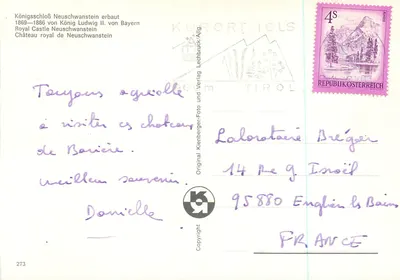 Königsschloß Neuschwanstein erbaut
1869—1886 von König Ludwig II. von Bayern
Royal Castle Neuschwanstein
Château royal de Neuschwanstein
Toujours agréable
à visiter ces chateaux
de Bavière.
meilleur souvenir.
Danielle
273
Copyright
Original Kienberger-Foto und Verlag Lechbruck/Allg.
TIROL
4S
REPUBLIK ÖSTERREICH
Laboratoire Bréger
14 Rue g Israël
95880 Enghien les Bains
FRANCE